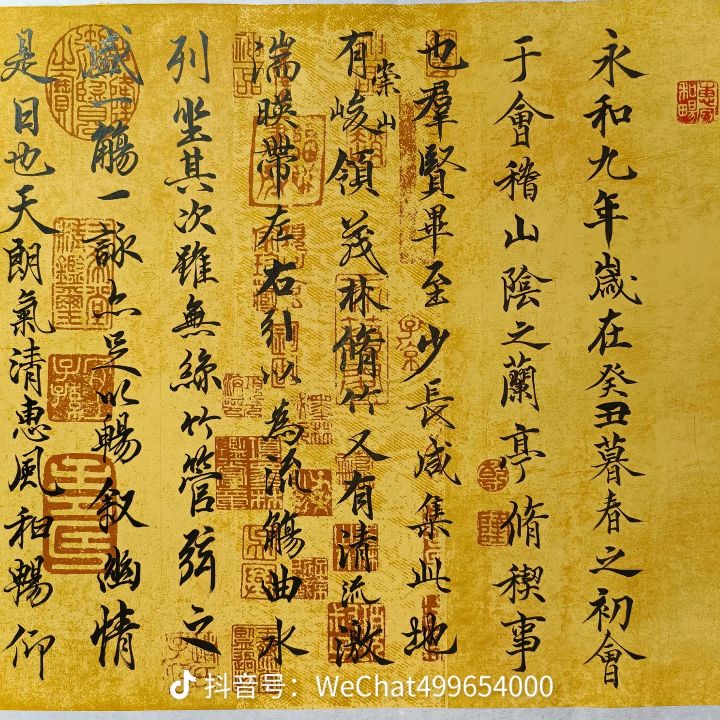 惠風和暢
永和九年歲在癸丑暮春之初會
于會稽山陰之蘭亭脩稧事
也羣賢畢至少長咸集此地
有崇山峻領茂林脩竹又有清流激
湍暎帶左右引以為流觴曲水
列坐其次雖無絲竹管弦之
盛一觴一詠亦足以暢叙幽情
是日也天朗氣清惠風和暢仰
抖音号：WeChat499654000